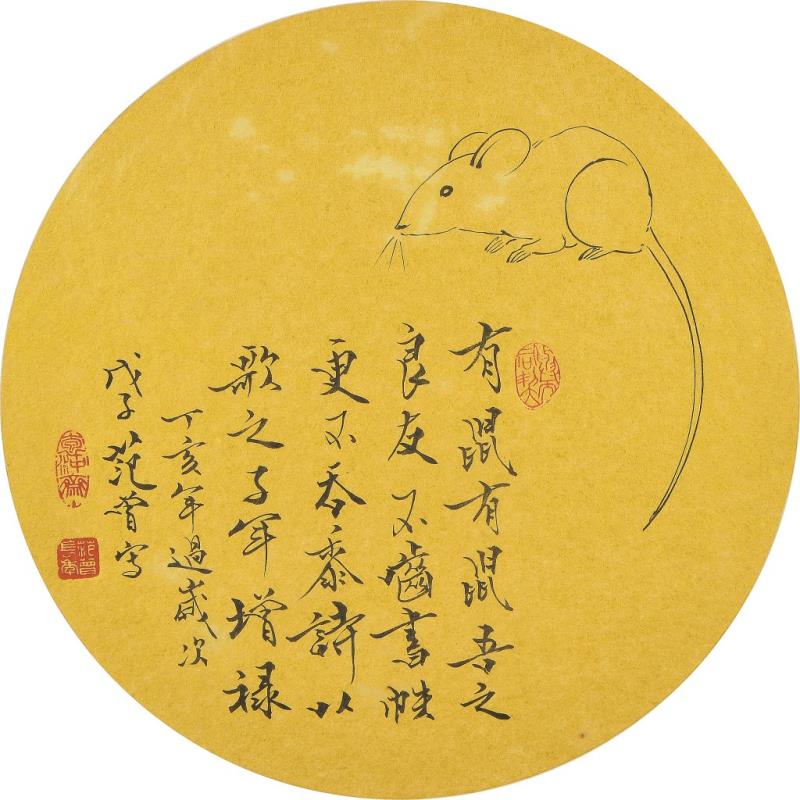 有鼠有鼠吾之
良友不齒書帙
更不吞黍詩以
歌之子年增祿
丁亥年過歲次
戊子范曾寫